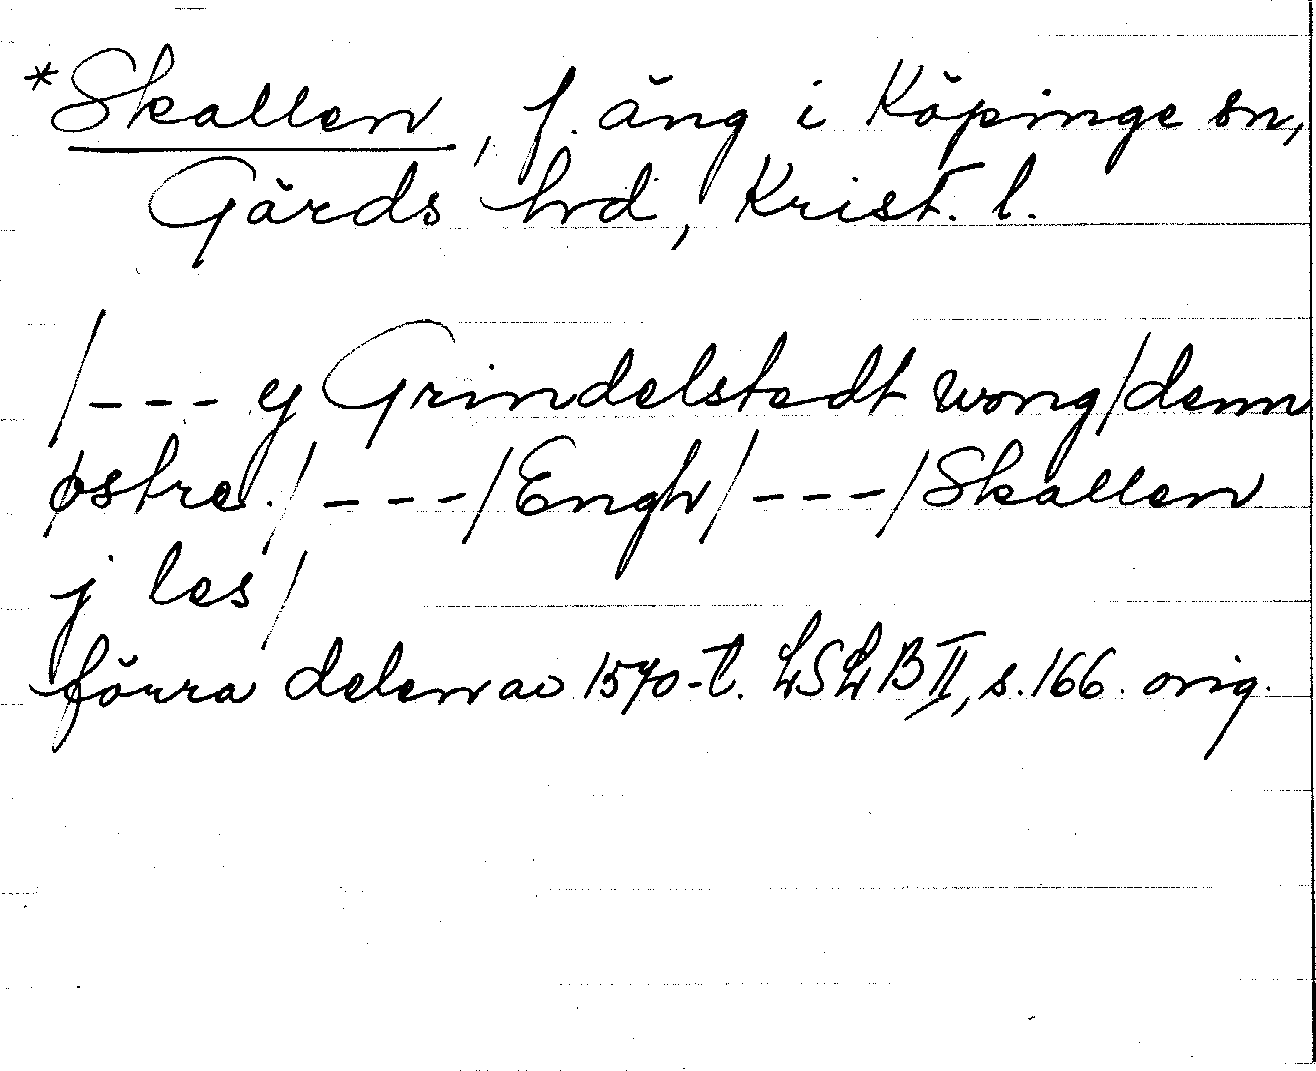 *Skallen, f. äng i Köpinge sn,
Gärds hrd, Krist. l.
/--- ej Grindelstedt wong/denn
østre./---/Engh/---/Skallen
j les/
förra delen av 1570-t. LSLB II, s. 166. orig.